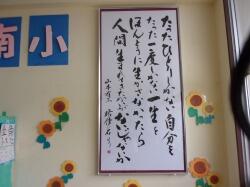 南小
たったひとりしかない自分を
たった一度しかない一生を
ほんとうに生かさなかったら
人間生まれてきたかいがないじゃないか
山本有三